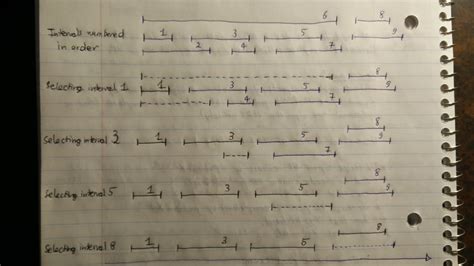 6 8
Intervals numbered 1 3 5 9
in order 2 4 7
8
Selecting interval 1 1 3 5 9
4 7
8
Selecting interval 3 1 3 5 9
7
8
Selecting interval 5 1 3 5 9
8
Selecting interval 8 1 3 5